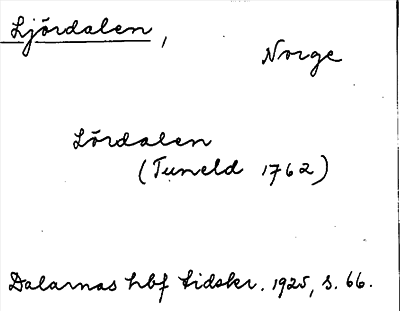 Ljördalen,
Norge
Lördalen
(Tuneld 1762)
Dalarnas hbf tidskr. 1925, s. 66.